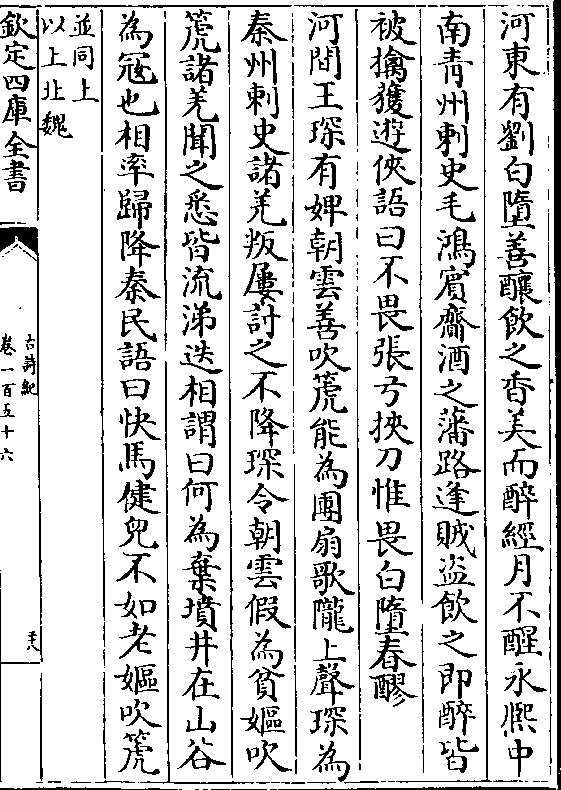 河東有劉白墮善釀飲之香美而醉經月不醒永熙中
南青州刺史毛鴻賓齎酒之藩路逢賊盗飲之即醉皆
被擒獲遊俠語曰不畏張弓挾刀惟畏白墮春醪
河間王琛有婢朝雲善吹篪能為團扇歌隴上聲琛為
秦州刺史諸羌叛屢討之不降琛令朝雲假為貧嫗吹
篪諸羌聞之悉皆流涕迭相謂曰何為棄墳井在山谷
為寇也相率歸降秦民語曰快馬健兒不如老嫗吹篪
並同上
以上北魏
欽定四庫全書
古詩紀
卷一百五十六